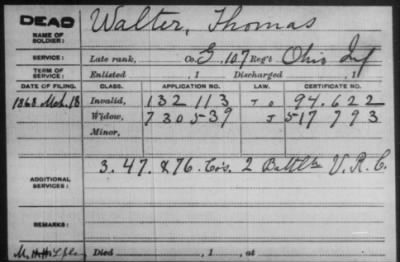 DEAD Walter, Thomas
NAME OF
SOLDIER:
SERVICE: Late rank, Co. G 107 Reg't Ohio Inf
TERM OF
SERVICE: Enlisted , 1 Discharged , 1
DATE OF FILING. CLASS. APPLICATION NO. LAW. CERTIFICATE NO.
1868 Mch. 18 Invalid, 132 113 94.622
Widow, 730 539 517 793
Minor,
3. 47. & 76. Co's. 2 Batt'l V. R. C.
ADDITIONAL
SERVICES:
REMARKS:
Died , 1 , at